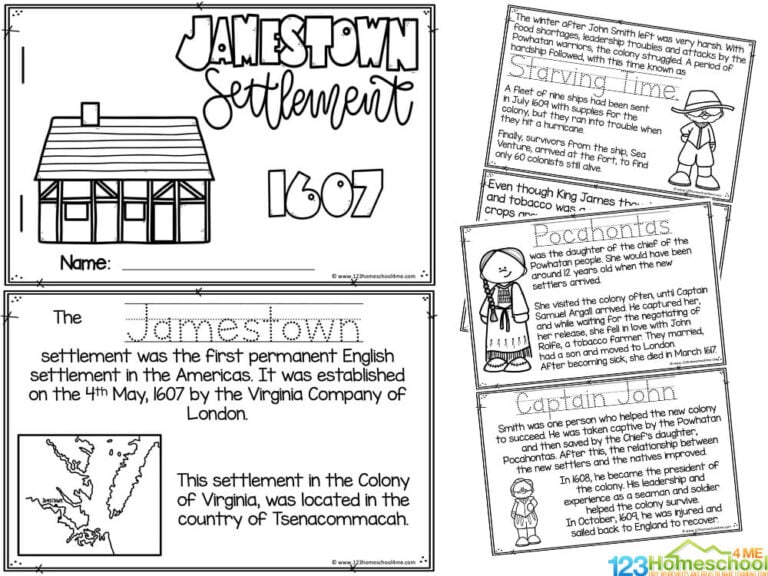 JAMESTOWN
Settlement
1607
Name:
© www.123homeschool4me.com
The Jamestown
settlement was the first permanent English
settlement in the Americas. It was established
on the 4th May, 1607 by the Virginia Company of
London.
JAMESTOWN
This settlement in the Colony
of Virginia, was located in the
country of Tsenacommacah.
© www.123homeschool4me.com
The winter after John Smith left was very harsh. With
food shortages, leadership troubles and attacks by the
Powhatan warriors, the colony struggled. A period of
hardship followed, with this time known as
Starving Time.
A fleet of nine ships had been sent
in July 1609 with supplies for the
colony, but they ran into trouble when
they hit a hurricane.
Finally, survivors from the ship, Sea
Venture, arrived at the fort, to find
only 60 colonists still alive.
© www.123homeschool4me.com
Even though King James
and tobacco was a
crops
Pocahontas
was the daughter of the chief of the
Powhatan people. She would have been
around 12 years old when the new
settlers arrived.
She visited the colony often, until Captain
Samuel Argall arrived. He captured her,
and while waiting for the negotiating of
her release, she fell in love with John
Rolfe, a tobacco farmer. They married,
had a son and moved to London.
After becoming sick, she died in March 1617.
© www.123homeschool4me.com
Captain John
Smith was one person who helped the new colony
to succeed. He was taken captive by the Powhatan
and then saved by the Chief's daughter,
Pocahontas. After this, the relationship between
the new settlers and the natives improved.
In 1608, he became the president of
the colony. His leadership and
experience as a seaman and soldier
helped the colony survive.
In October, 1609, he was injured and
sailed back to England to recover.
© www.123homeschool4me.com
123Homeschool 4 ME